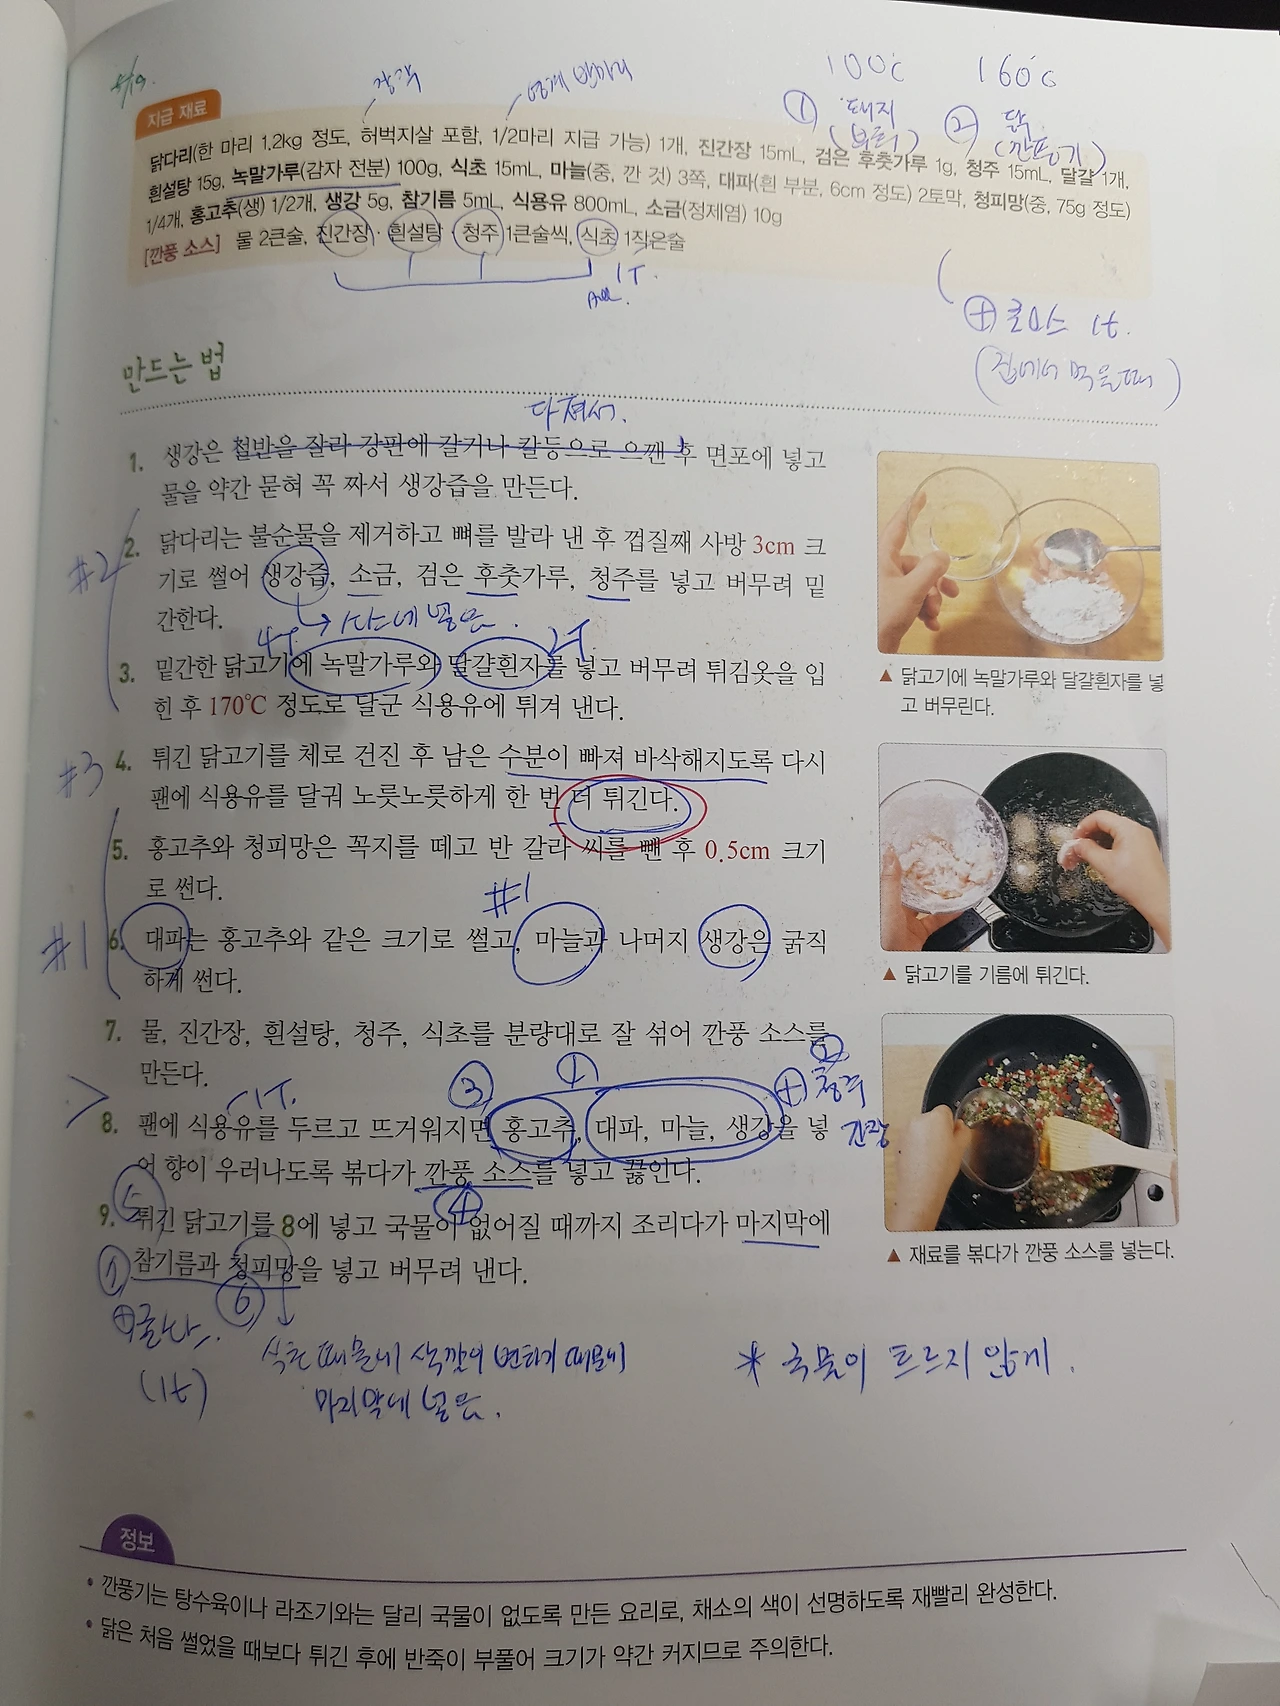 5/19.
장각
영계 반마리
100℃
160℃
① 돼지
② 닭
(깐풍기)
지급 재료
닭다리(한 마리 1.2kg 정도, 허벅지살 포함, 1/2마리 지급 가능) 1개, 진간장 15mL, 검은 후춧가루 1g, 청주 15mL, 달걀 1개,
흰설탕 15g, 녹말가루(감자 전분) 100g, 식초 15mL, 마늘(중, 깐 것) 3쪽, 대파(흰 부분, 6cm 정도) 2토막, 청피망(중, 75g 정도)
1/4개, 홍고추(생) 1/2개, 생강 5g, 참기름 5mL, 식용유 800mL, 소금(정제염) 10g
[깐풍 소스] 물 2큰술, 진간장·흰설탕·청주 1큰술씩, 식초 1작은술
All 1T.
⊕ 굴소스 1t.
(집에서 먹을때)
만드는 법
다져서.
1. 생강은 철반을 잘라 강판에 갈거나 칼등으로 으깬 후 면포에 넣고
물을 약간 묻혀 꼭 짜서 생강즙을 만든다.
#2
2. 닭다리는 불순물을 제거하고 뼈를 발라 낸 후 껍질째 사방 3cm 크
기로 썰어 생강즙, 소금, 검은 후춧가루, 청주를 넣고 버무려 밑
간한다.
3. 밑간한 닭고기에 녹말가루와 달걀흰자를 넣고 버무려 튀김옷을 입
힌 후 170℃ 정도로 달군 식용유에 튀겨 낸다.
▲ 닭고기에 녹말가루와 달걀흰자를 넣
고 버무린다.
#3
4. 튀긴 닭고기를 체로 건진 후 남은 수분이 빠져 바삭해지도록 다시
팬에 식용유를 달궈 노릇노릇하게 한 번 더 튀긴다.
5. 홍고추와 청피망은 꼭지를 떼고 반 갈라 씨를 뺀 후 0.5cm 크기
로 썬다.
#1
#1
6. 대파는 홍고추와 같은 크기로 썰고, 마늘과 나머지 생강은 굵직
하게 썬다.
▲ 닭고기를 기름에 튀긴다.
7. 물, 진간장, 흰설탕, 청주, 식초를 분량대로 잘 섞어 깐풍 소스를
만든다.
1T.
③
①
⊕
②
청주
간장
8. 팬에 식용유를 두르고 뜨거워지면 홍고추, 대파, 마늘, 생강을 넣
어 향이 우러나도록 볶다가 깐풍 소스를 넣고 끓인다.
⑤
④
9. 튀긴 닭고기를 8에 넣고 국물이 없어질 때까지 조리다가 마지막에
참기름과 청피망을 넣고 버무려 낸다.
▲ 재료를 볶다가 깐풍 소스를 넣는다.
⑥
(1t)
식초 때문에 색깔이 변하기 때문에
마지막에 넣음.
* 국물이 흐르지 않게.
정보
• 깐풍기는 탕수육이나 라조기와는 달리 국물이 없도록 만든 요리로, 채소의 색이 선명하도록 재빨리 완성한다.
• 닭은 처음 썰었을 때보다 튀긴 후에 반죽이 부풀어 크기가 약간 커지므로 주의한다.